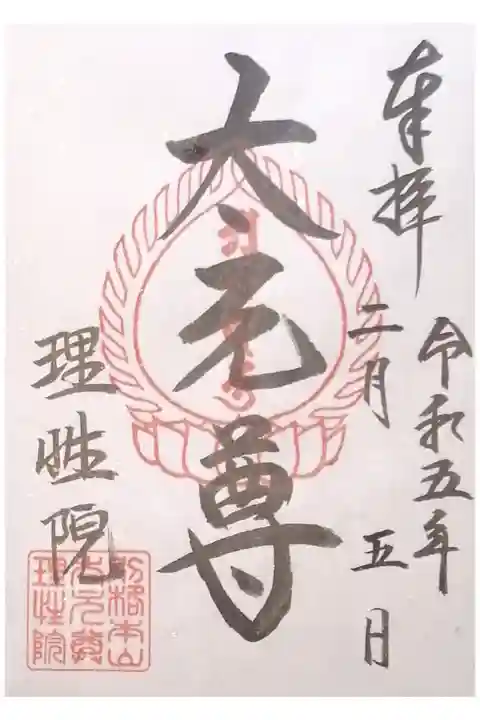 奉拝
令和五年
二月五日
太元尊
理性院
別格本山
太元尊
理性院